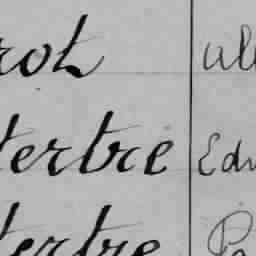 rot Al
tertre Edu
tertre Pa